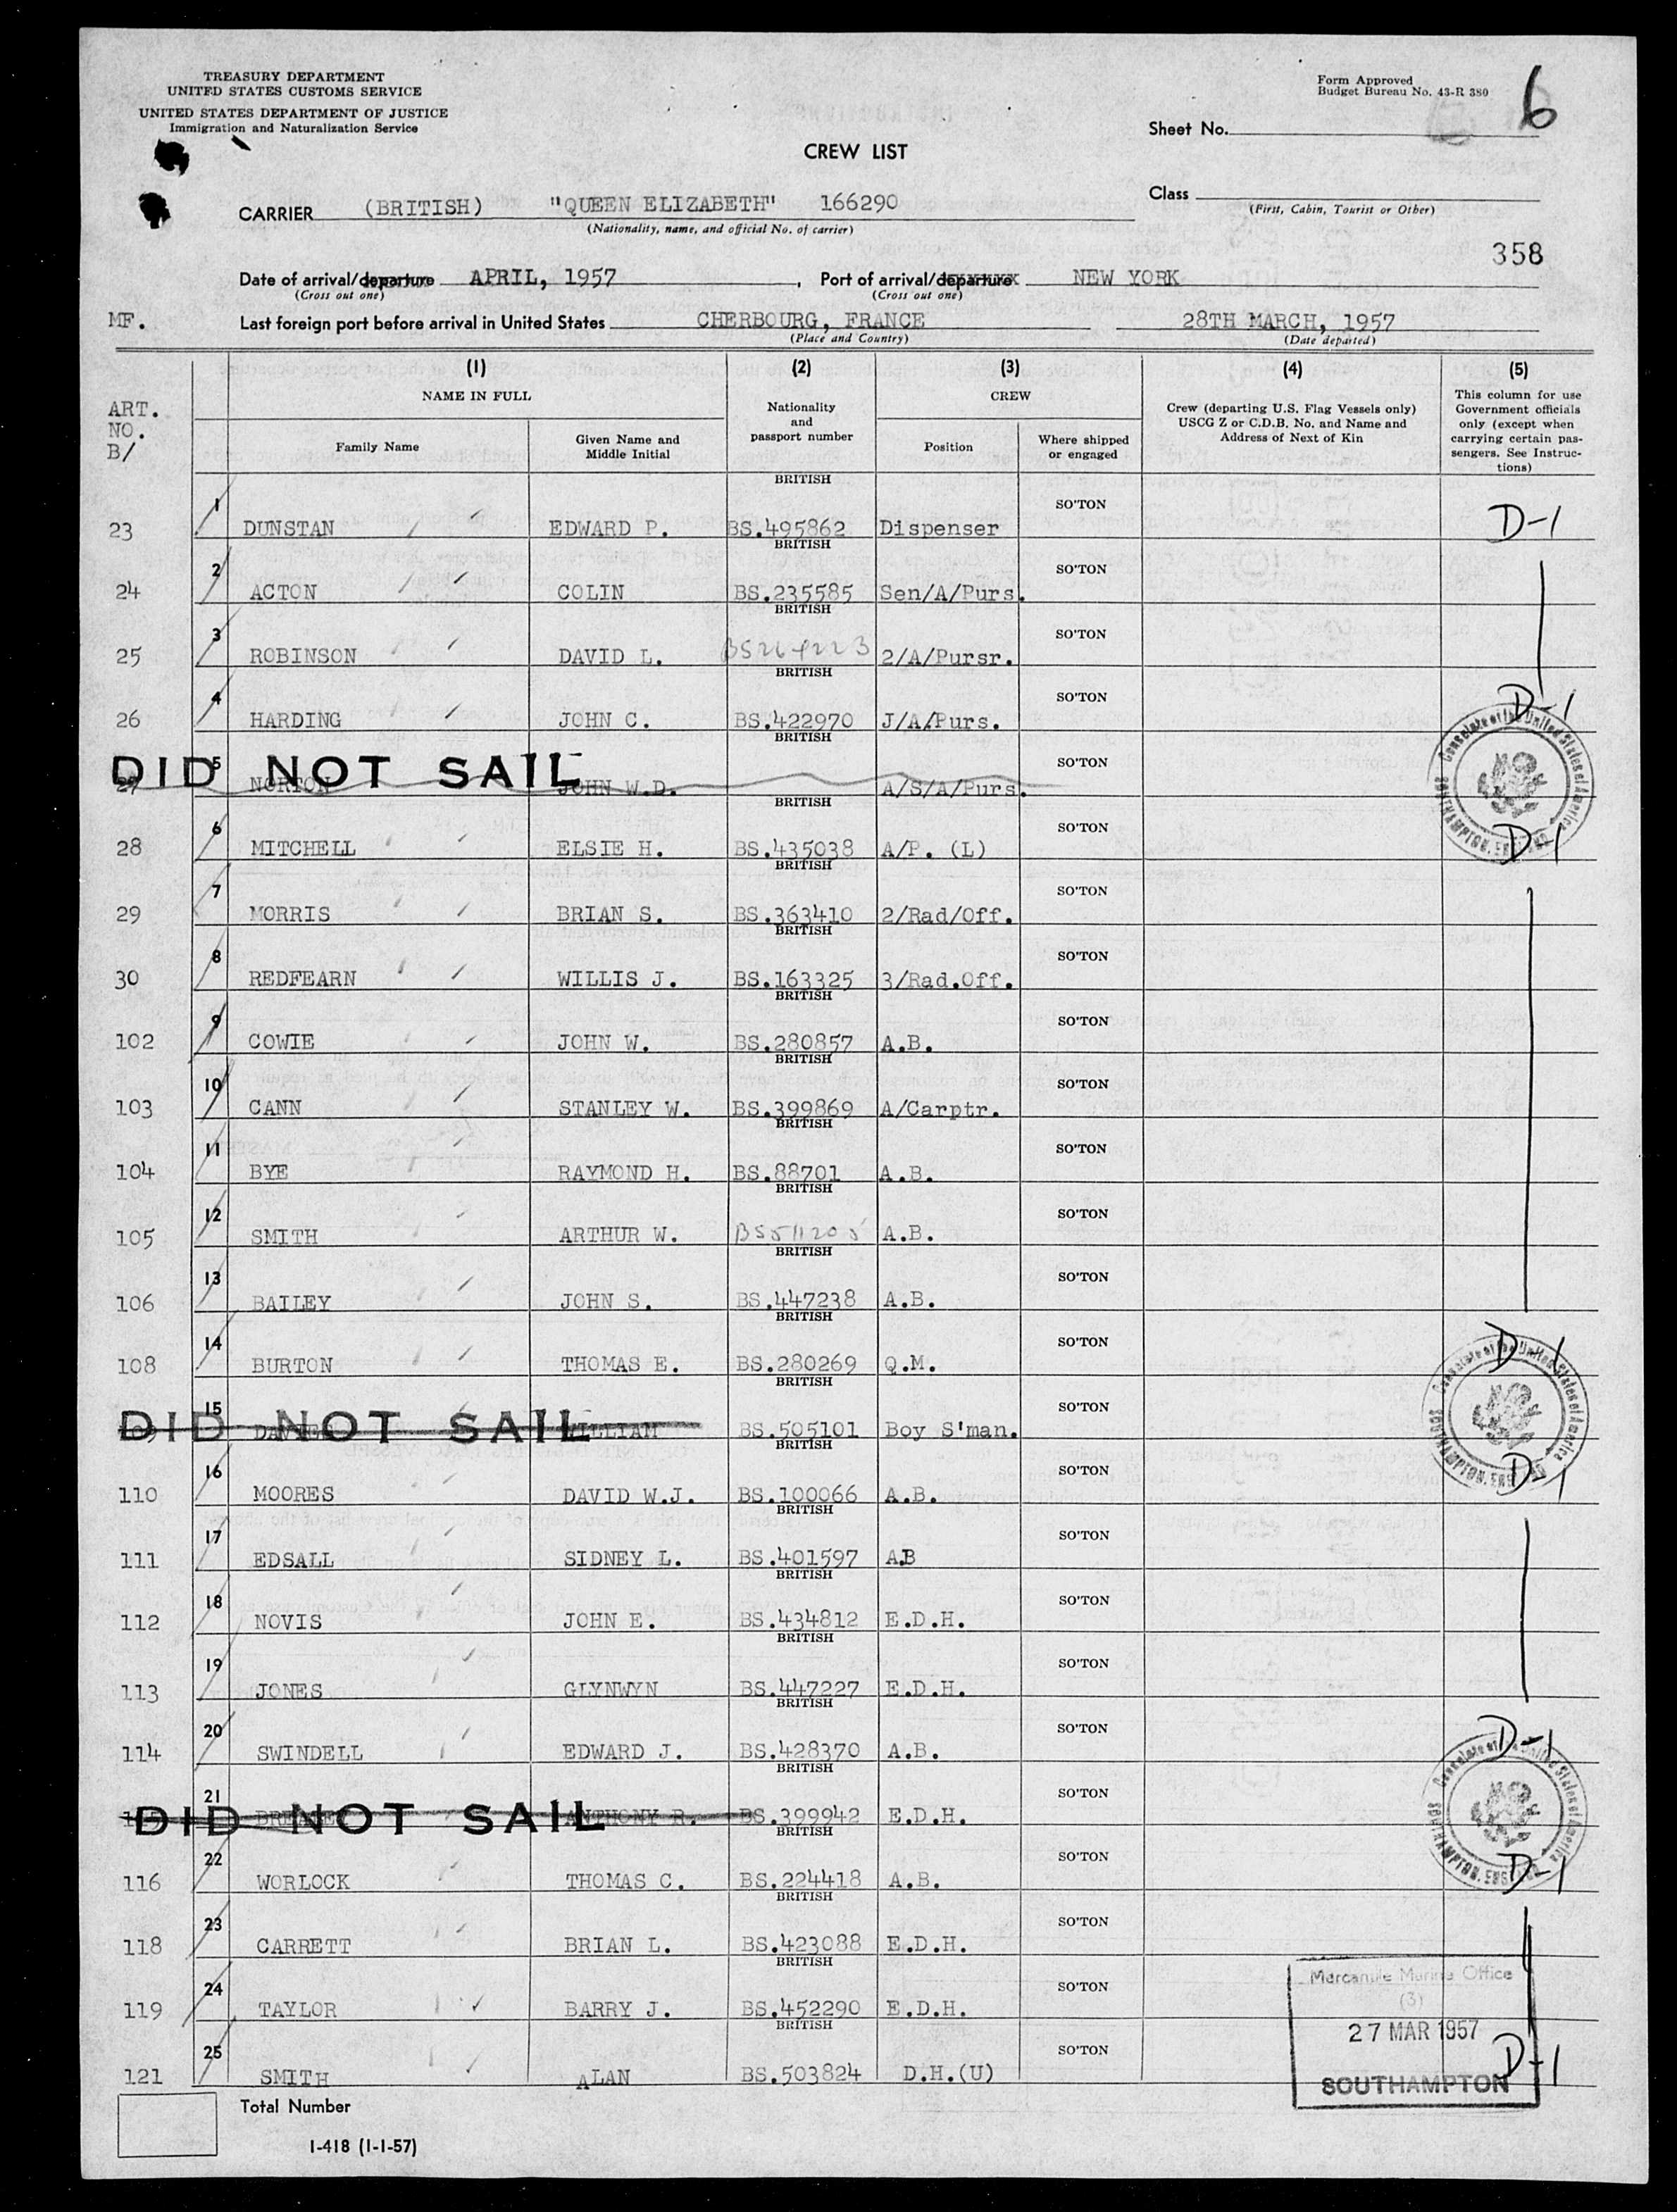 TREASURY DEPARTMENT
UNITED STATES CUSTOMS SERVICE
UNITED STATES DEPARTMENT OF JUSTICE
Immigration and Naturalization Service
Form Approved
Budget Bureau No. 43-R 380
Sheet No. 6
CREW LIST
Class
(First, Cabin, Tourist or Other)
CARRIER (BRITISH) "QUEEN ELIZABETH" 166290
(Nationality, name, and official No. of carrier)
358
Date of arrival/departure APRIL, 1957, Port of arrival/departure NEW YORK
(Cross out one) (Cross out one)
MF. Last foreign port before arrival in United States CHERBOURG, FRANCE 28TH MARCH, 1957
(Place and Country) (Date departed)
ART. NO. B/
(1) (2) (3) (4) (5)
NAME IN FULL
Family Name
Given Name and Middle Initial
Nationality and passport number
CREW
Position
Where shipped or engaged
Crew (departing U.S. Flag Vessels only) USCG Z or C.D.B. No. and Name and Address of Next of Kin
This column for use Government officials only (except when carrying certain passengers. See Instructions)
23 1 DUNSTAN EDWARD P. BRITISH BS.495862 Dispenser SO'TON D-1
24 2 ACTON COLIN BRITISH BS.235585 Sen/A/Purs. SO'TON
25 3 ROBINSON DAVID L. BRITISH 2/A/Pursr. SO'TON
26 4 HARDING JOHN C. BRITISH BS.422970 J/A/Purs. SO'TON D-1
27 5 NORTON JOHN W.D. BRITISH A/S/A/Purs. SO'TON
DID NOT SAIL
Consulate of the United States of America
SOUTHAMPTON, ENGLAND
28 6 MITCHELL ELSIE H. BRITISH BS.435038 A/P. (L) SO'TON D-1
29 7 MORRIS BRIAN S. BRITISH BS.363410 2/Rad/Off. SO'TON
30 8 REDFEARN WILLIS J. BRITISH BS.163325 3/Rad.Off. SO'TON
102 9 COWIE JOHN W. BRITISH BS.280857 A.B. SO'TON
103 10 CANN STANLEY W. BRITISH BS.399869 A/Carptr. SO'TON
104 11 BYE RAYMOND H. BRITISH BS.88701 A.B. SO'TON
105 12 SMITH ARTHUR W. BRITISH BS511205 A.B. SO'TON
106 13 BAILEY JOHN S. BRITISH BS.447238 A.B. SO'TON
108 14 BURTON THOMAS E. BRITISH BS.280269 Q.M. SO'TON D-1
109 15 WILLIAM BRITISH BS.505101 Boy S'man. SO'TON
DID NOT SAIL
Consulate of the United States of America
SOUTHAMPTON, ENGLAND
110 16 MOORES DAVID W.J. BRITISH BS.100066 A.B. SO'TON D-1
111 17 EDSALL SIDNEY L. BRITISH BS.401597 AB SO'TON
112 18 NOVIS JOHN E. BRITISH BS.434812 E.D.H. SO'TON
113 19 JONES GLYNWYN BRITISH BS.447227 E.D.H. SO'TON
114 20 SWINDELL EDWARD J. BRITISH BS.428370 A.B. SO'TON D-1
21 ANTHONY R. BRITISH BS.399942 E.D.H. SO'TON
DID NOT SAIL
Consulate of the United States of America
SOUTHAMPTON, ENGLAND
116 22 WORLOCK THOMAS C. BRITISH BS.224418 A.B. SO'TON D-1
118 23 CARRETT BRIAN L. BRITISH BS.423088 E.D.H. SO'TON
119 24 TAYLOR BARRY J. BRITISH BS.452290 E.D.H. SO'TON
121 25 SMITH ALAN BRITISH BS.503824 D.H.(U) SO'TON D-1
Mercantile Marine Office
(3)
27 MAR 1957
SOUTHAMPTON
Total Number
I-418 (1-1-57)